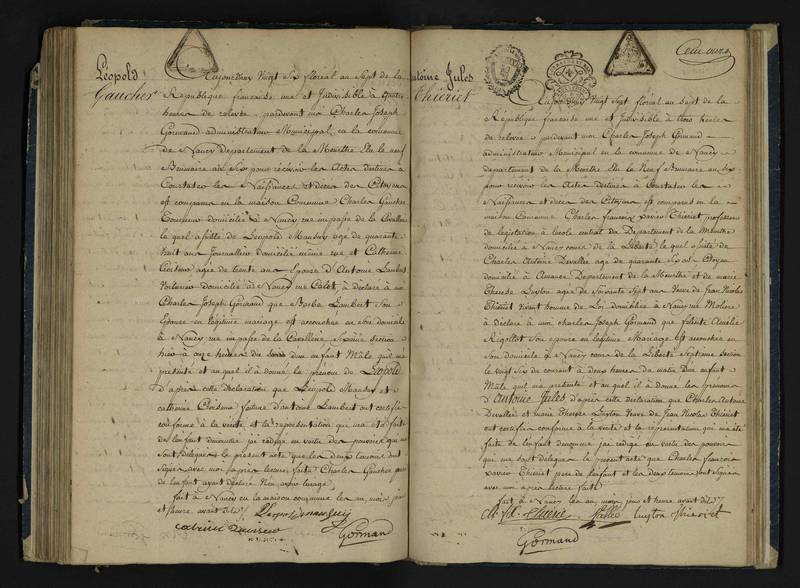 Léopold
Gaucher
Aujourdhuy Vingt Six floréal an Sept de La
République française une et Indivisible à quatre
heures de relevée, pardevant moi Charles Joseph
Gormand administrateur Municipal en la commune
de Nancy Département de la Meurthe Elu le neuf
Brumaire an Six pour recevoir les Actes destinés à
Constater les Naissances et décès des Citoyens
est comparu en la maison Commune Charles Gaucher
domicilié à Nancy rue impasse de la Cavallerie
le quel assisté de Léopold Mansuy agé de quarante
huit ans Journallier domicilié même rue et Catherine
agée de trente ans Epouse d'Antoine Lambert
Voiturier domicilié à Nancy rue Callot, à déclaré à moi
Charles Joseph Gormand que Barbe Lambert Son
Epouse en légitime mariage est accouchée en Son domicile
à Nancy rue impasse de la Cavallerie, Sixième section
hier à onze heures du soir d'un enfant Mâle qu'il m'a
présenté et auquel il à donné le prénom de Léopold
D'après cette déclaration que Léopold Mansuy et
catherine d'antoine Lambert ont certifié
conforme à la vérité, et la représentation qui m'a été faite
de l'enfant dénommé j'ai rédigé en vertu des pouvoirs qui me
Sont délégués le présent acte que les deux témoins ont
Signé avec moi après lecture faite, Charles Gaucher père
de l'enfant ayant déclaré n'en avoir l'usage
fait à Nancy en la maison commune les an, mois, jour
et heure avant dits
Leopold mansuy
Gormand
Antoine Jules
Thieriet
Aujourdhuy Vingt Sept floréal an sept de la
République française une et Indivisible à trois heures
de relevée, pardevant moi Charles Joseph Gormand
administrateur Municipal en la commune de Nancy
département de la Meurthe Elu le Neuf Brumaire an six
pour recevoir les Actes destinés à Constater les
Naissances et décès des Citoyens est comparu en la
maison Commune Charles françois Xavier Thieriet professeur
de législation à l'école centrale du Département de la Meurthe
domicilié à Nancy cours de la Liberté, le quel assisté de
Charles Antoine Devallée agé de quarante Six ans Citoyen
domicilié à Amance Département de la Meurthe et de marie
Therese Luxton agée de Soixante Sept ans Veuve de Jean Nicolas
Thieriet vivant homme de Loi domiciliée à Nancy rue Moliere
à déclaré à moi charles Joseph Gormand que
Son Epouse en légitime Mariage est accouchée en
Son domicile à Nancy cours de la Liberté Septième section
le vingt six du courant à deux heures du matin d'un enfant
Mâle qu'il m'a présenté et auquel il à donné les prénoms
d'Antoine Jules, d'après cette déclaration que Charles Antoine
Devallée et marie Therese Luxton Veuve de Jean Nicolas Thieriet
ont certifiée conforme à la vérité et la représentation qui m'a été
faite de l'enfant dénommé j'ai rédigé en vertu des pouvoirs
qui me sont délégués le présent acte que Charles françois
Xavier Thieriet père de l'enfant et les deux témoins ont Signé
avec moi après lecture faite
fait à Nancy les an mois, jour et heure avant dits
luxton thieriet
Gormand